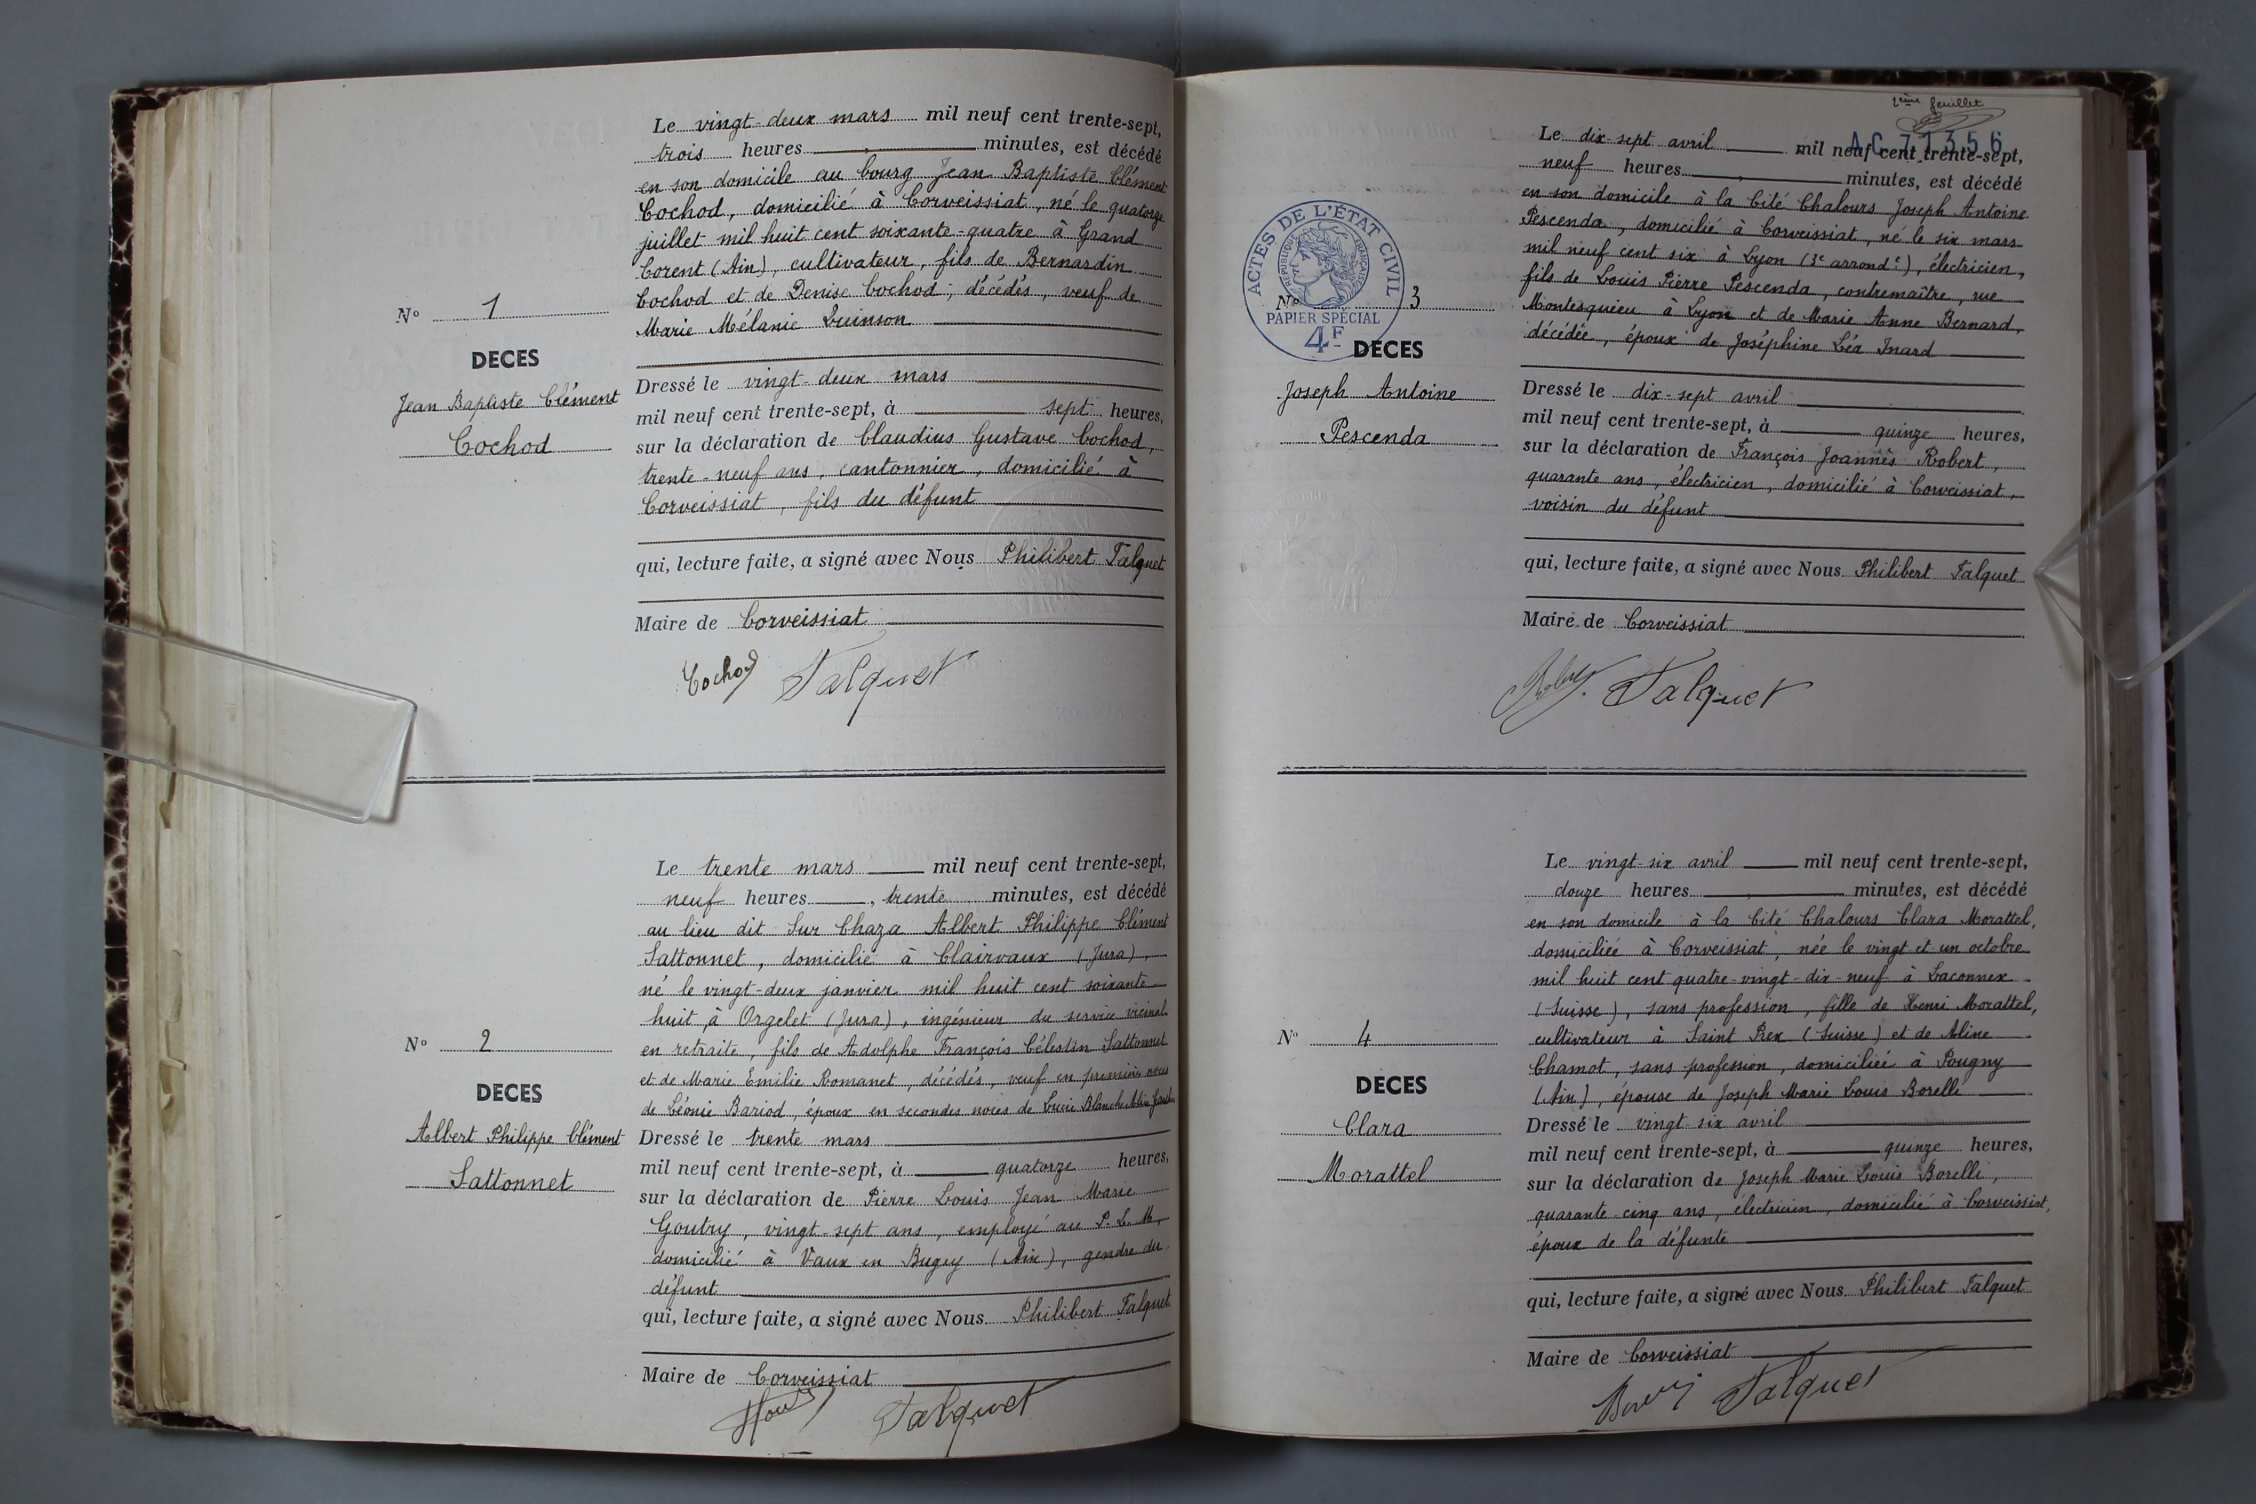 Le vingt-deux mars mil neuf cent trente-sept,
trois heures, minutes, est décédé
en son domicile au bourg Jean Baptiste Clément
Cochod, domicilié à Corveissiat, né le quatorze
juillet mil huit cent soixante-quatre à Grand
Corent (Ain), cultivateur, fils de Bernardin
Cochod et de Denise Cochod, décédés, veuf de
Marie Mélanie Luinson
N° 1
DECES
Jean Baptiste Clément
Cochod
Dressé le vingt-deux mars
mil neuf cent trente-sept, à sept heures,
sur la déclaration de Claudius Gustave Cochod,
trente-neuf ans, cantonnier, domicilié à
Corveissiat, fils du défunt
qui, lecture faite, a signé avec Nous Philibert Falquet
Maire de Corveissiat
Cochod Falquet
Le trente mars mil neuf cent trente-sept,
neuf heures, trente minutes, est décédé
au lieu dit Sur Chaza Albert Philippe Clément
Sattonnet, domicilié à Clairvaux (Jura),
né le vingt-deux janvier mil huit cent soixante-
huit, à Orgelet (Jura), ingénieur du service vicinal
en retraite, fils de Adolphe François Célestin Sattonnet
et de Marie Emilie Romanet, décédés, veuf en premières noces
de Léonie Bariod, époux en secondes noces de Lucie Blanche
N° 2
DECES
Albert Philippe Clément
Sattonnet
Dressé le trente mars
mil neuf cent trente-sept, à quatorze heures,
sur la déclaration de Pierre Louis Jean Marie
Goutry, vingt-sept ans, employé au P. L. M,
domicilié à Vaux en Bugey (Ain), gendre du
défunt
qui, lecture faite, a signé avec Nous Philibert Falquet
Maire de Corveissiat
Falquet
2ème feuillet
AC 71356
Le dix-sept avril mil neuf cent trente-sept,
neuf heures, minutes, est décédé
en son domicile à la Cité Chalours Joseph Antoine
Pescenda, domicilié à Corveissiat, né le six mars
mil neuf cent six à Lyon (3e arrondt), électricien,
fils de Louis Pierre Pescenda, contremaître, rue
Montesquieu à Lyon et de Marie Anne Bernard,
décédée, époux de Joséphine Léa Inard
ACTES DE L'ÉTAT CIVIL
RÉPUBLIQUE FRANÇAISE
PAPIER SPÉCIAL
4F
N° 3
DECES
Joseph Antoine
Pescenda
Dressé le dix-sept avril
mil neuf cent trente-sept, à quinze heures,
sur la déclaration de François Joannès Robert,
quarante ans, électricien, domicilié à Corveissiat,
voisin du défunt
qui, lecture faite, a signé avec Nous Philibert Falquet
Maire de Corveissiat
Robert Falquet
Le vingt-six avril mil neuf cent trente-sept,
douze heures, minutes, est décédé
en son domicile à la Cité Chalours Clara Morattel,
domiciliée à Corveissiat, née le vingt et un octobre
mil huit cent quatre-vingt-dix-neuf à Laconnex
(Suisse), sans profession, fille de Henri Morattel,
cultivateur à Saint Prex (Suisse) et de Aline
Chamot, sans profession, domiciliée à Pougny
(Ain), épouse de Joseph Marie Louis Borelli
N° 4
DECES
Clara
Morattel
Dressé le vingt-six avril
mil neuf cent trente-sept, à quinze heures,
sur la déclaration de Joseph Marie Louis Borelli,
quarante-cinq ans, électricien, domicilié à Corveissiat,
époux de la défunte
qui, lecture faite, a signé avec Nous Philibert Falquet
Maire de Corveissiat
Borelli Falquet